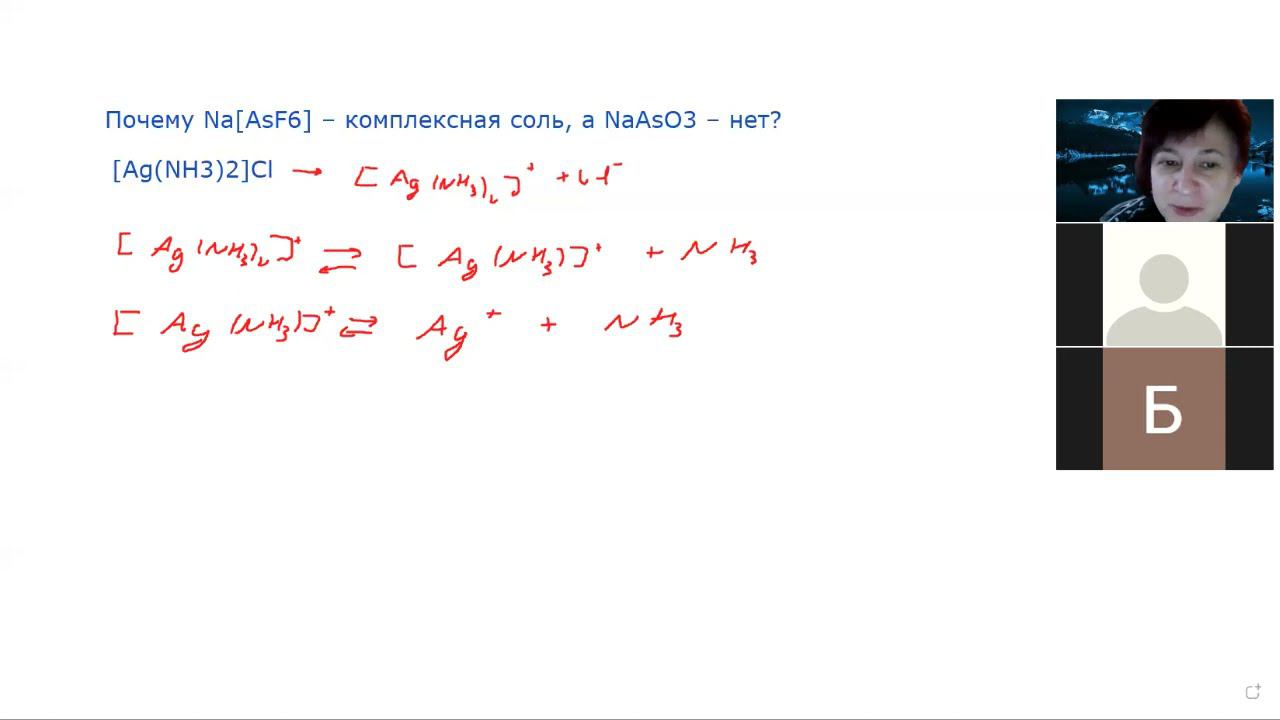 Почему Na[AsF6] – комплексная соль, а NaAsO3 – нет?
[Ag(NH3)2]Cl → [Ag(NH3)2]+ + Cl-
[Ag(NH3)2]+ ⇄ [Ag(NH3)]+ + NH3
[Ag(NH3)]+ ⇄ Ag+ + NH3
Б